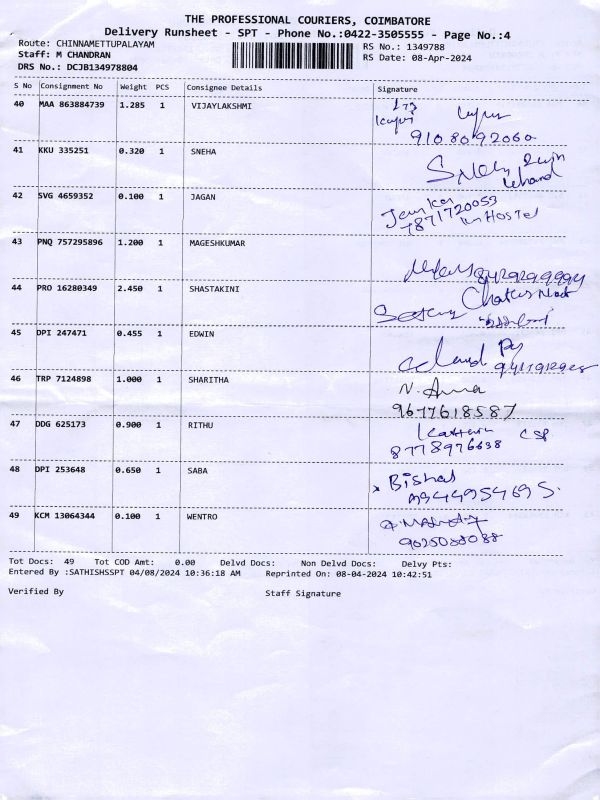 THE PROFESSIONAL COURIERS, COIMBATORE
Delivery Runsheet - SPT - Phone No.:0422-3505555 - Page No.:4
Route: CHINNAMETTUPALAYAM
RS No.: 1349788
Staff: M CHANDRAN
RS Date: 08-Apr-2024
DRS No.: DCJB134978804
S No Consignment No Weight PCS Consignee Details Signature
40 MAA 863884739 1.285 1 VIJAYLAKSHMI
9108092060
41 KKU 335251 0.320 1 SNEHA
42 SVG 4659352 0.100 1 JAGAN
7871720053
HOSTEL
43 PNQ 757295896 1.200 1 MAGESHKUMAR
44 PRO 16280349 2.450 1 SHASTAKINI
45 DPI 247471 0.455 1 EDWIN
46 TRP 7124898 1.000 1 SHARITHA
9677618587
47 DDG 625173 0.900 1 RITHU
8778976638
48 DPI 253648 0.650 1 SABA
Bishal
49 KCM 13064344 0.100 1 WENTRO
Tot Docs: 49 Tot COD Amt: 0.00 Delvd Docs: Non Delvd Docs: Delvy Pts:
Entered By :SATHISHSSPT 04/08/2024 10:36:18 AM Reprinted On: 08-04-2024 10:42:51
Verified By Staff Signature